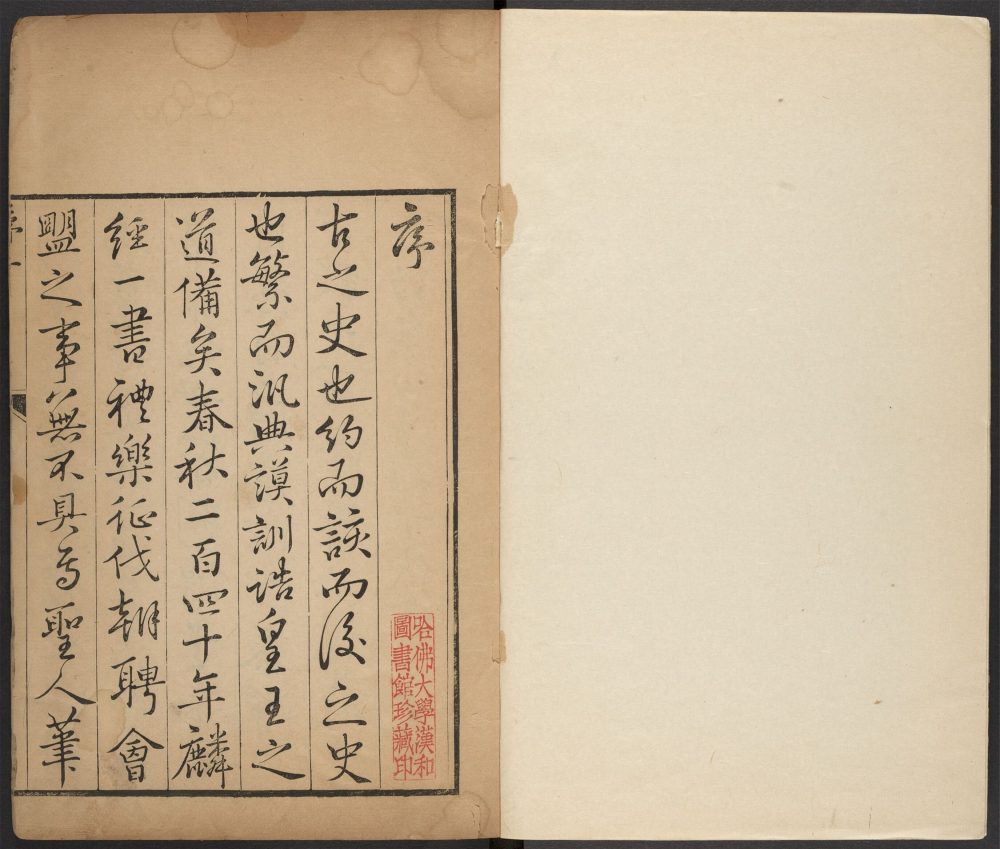 序
古之史也約而該而後之史
也繁而汎典謨訓誥皇王之
道備矣春秋二百四十年麟
經一書禮樂征伐朝聘會
盟之事無不具焉聖人筆
哈佛大學漢和
圖書館珍藏印